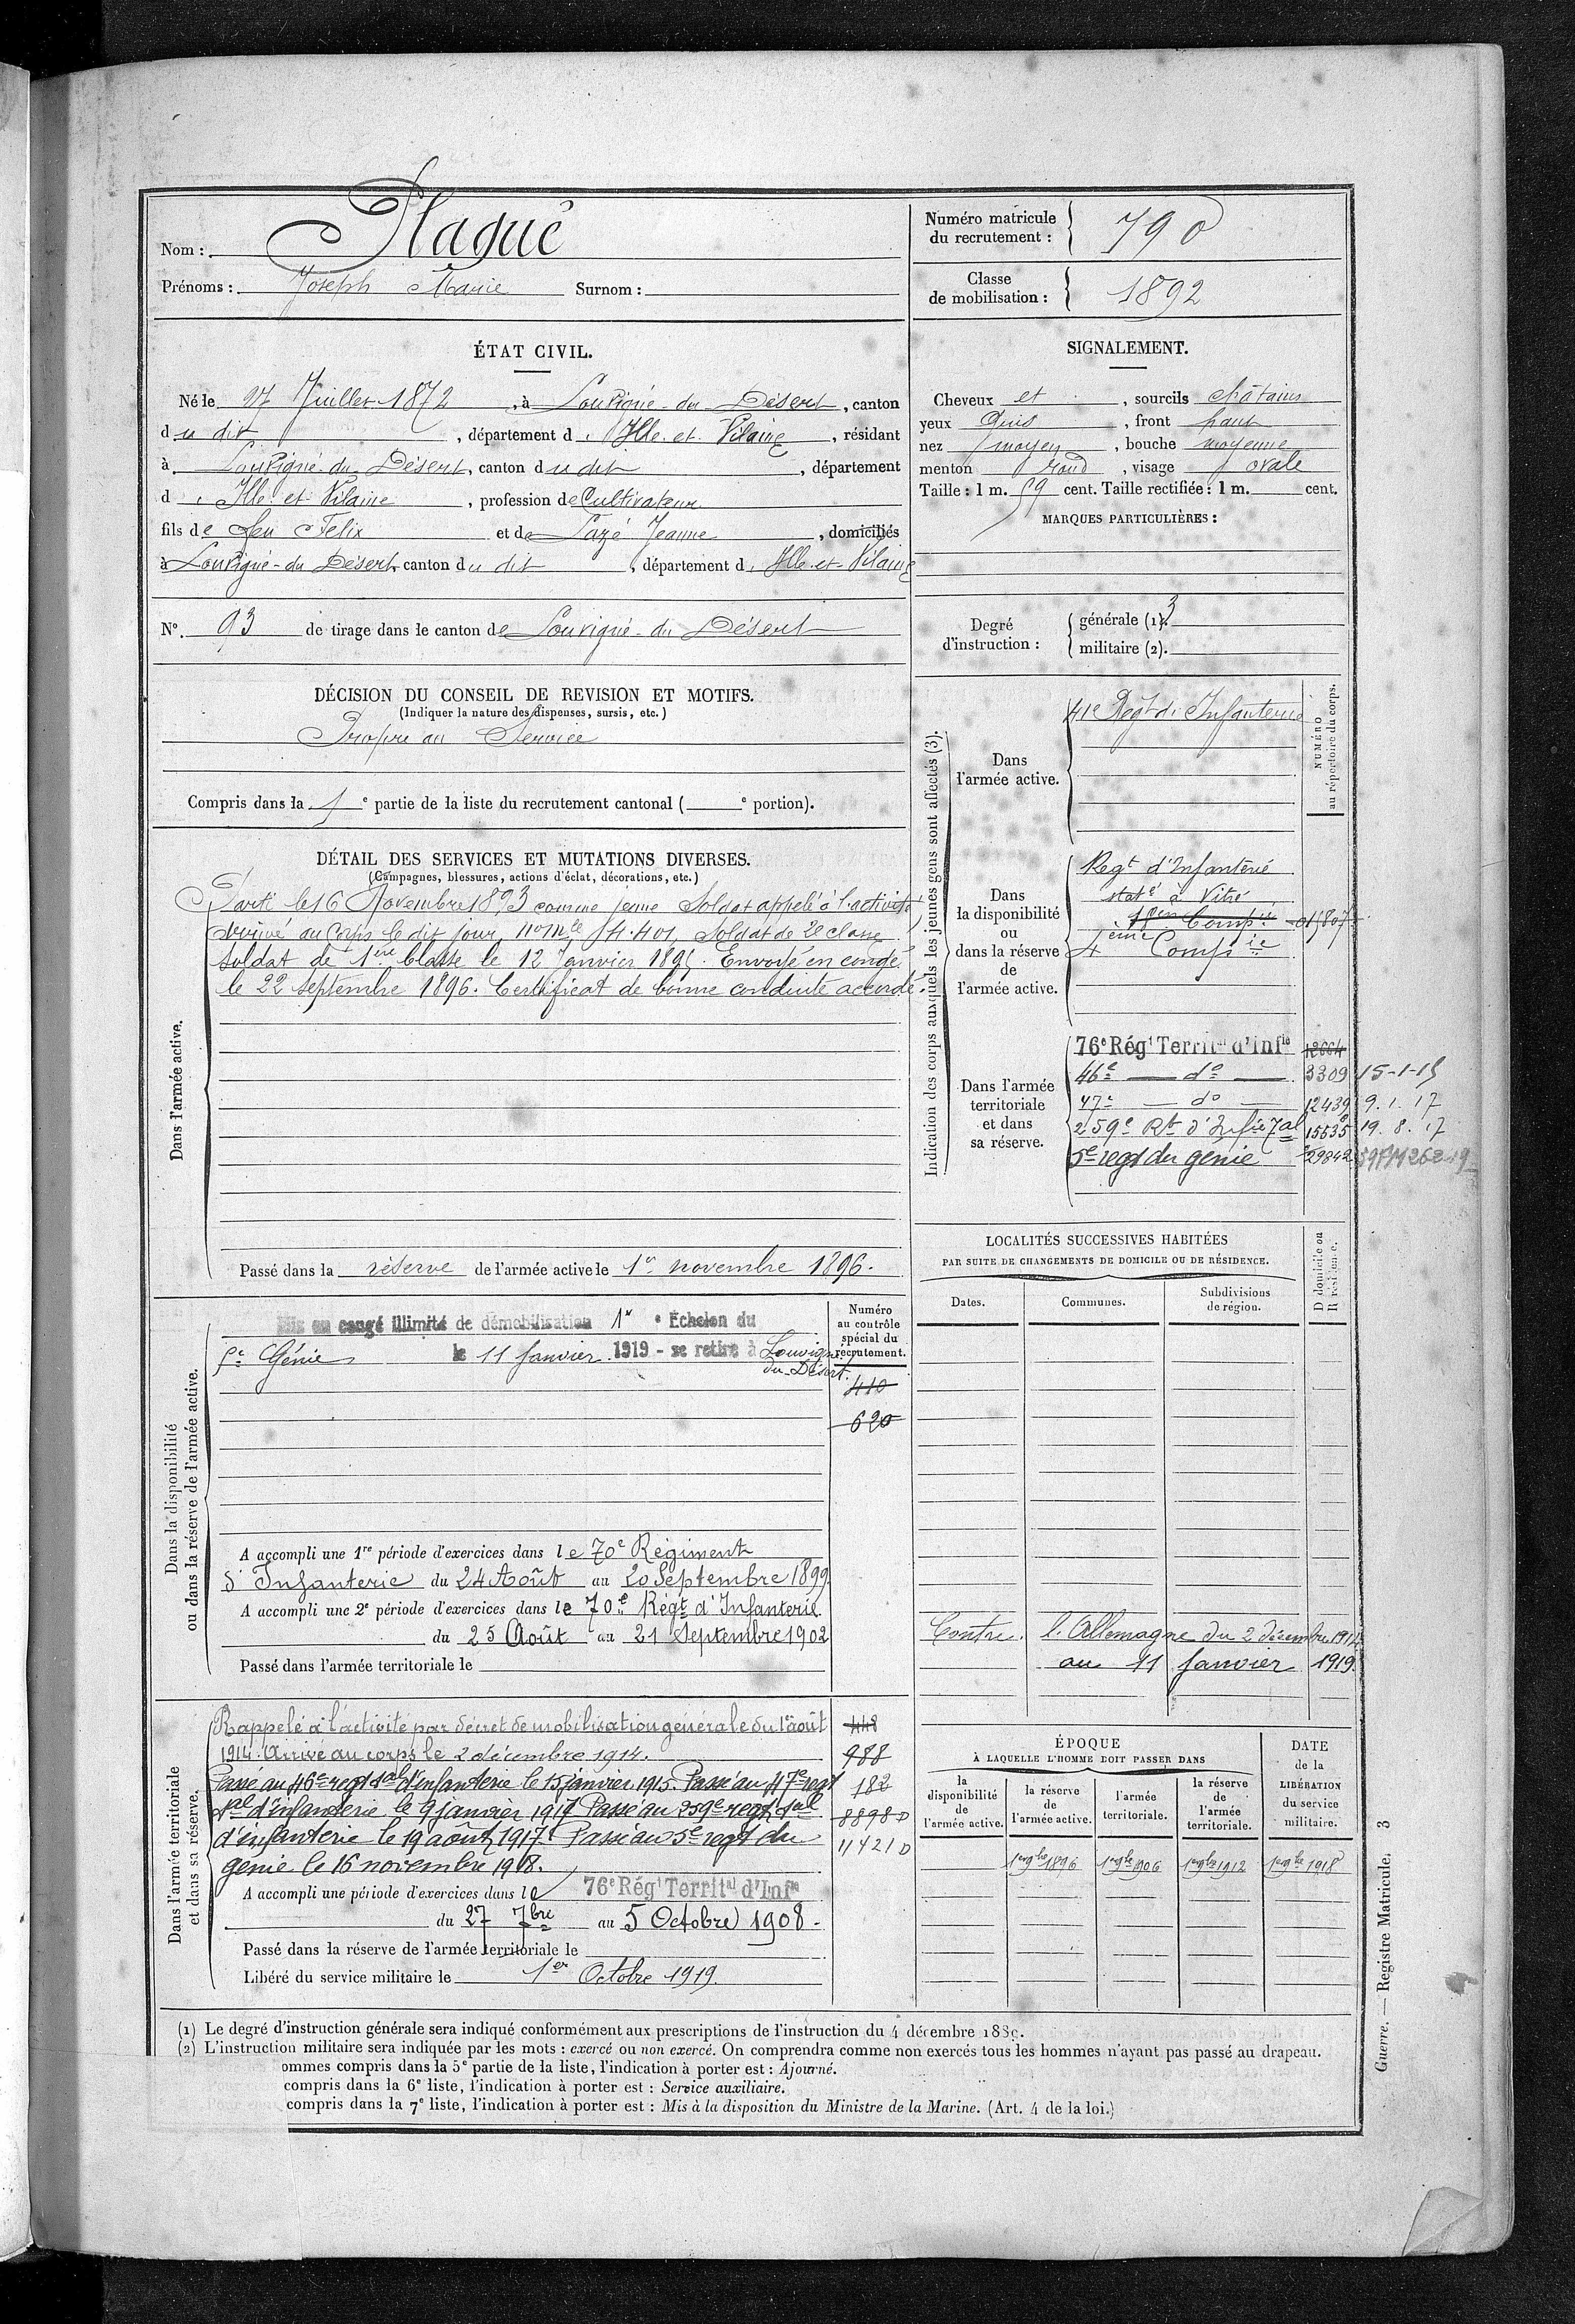 Nom : Plaqué
Prénoms : Joseph Marie Surnom :
Numéro matricule du recrutement : 790
Classe de mobilisation : 1892
ÉTAT CIVIL.
Né le 27 Juillet 1872, à Louvigné-du-Désert, canton
du dit, département d'Ille-et-Vilaine, résidant
à Louvigné-du-Désert, canton du dit, département
d'Ille-et-Vilaine, profession de Cultivateur
fils de feu Felix et de Lazé Jeanne, domiciliés
à Louvigné-du-Désert, canton du dit, département d'Ille-et-Vilaine
N°. 93 de tirage dans le canton de Louvigné-du-Désert
SIGNALEMENT.
Cheveux et, sourcils châtains
yeux gris, front haut
nez moyen, bouche moyenne
menton rond, visage ovale
Taille : 1 m. 59 cent. Taille rectifiée : 1 m. cent.
MARQUES PARTICULIÈRES :
Degré d'instruction : générale (1). 3
militaire (2).
DÉCISION DU CONSEIL DE REVISION ET MOTIFS.
(Indiquer la nature des dispenses, sursis, etc.)
Propre au Service
Compris dans la 1e partie de la liste du recrutement cantonal ( e portion).
DÉTAIL DES SERVICES ET MUTATIONS DIVERSES.
(Campagnes, blessures, actions d'éclat, décorations, etc.)
Dans l'armée active.
Parti le 16 Novembre 1893 comme jeune Soldat appelé à l'activité
Arrivé au Corps le dit jour, no mle 4.401, Soldat de 2e classe
soldat de 1ère Classe le 12 Janvier 1895. Envoyé en congé
le 22 septembre 1896. Certificat de bonne conduite accordé.
Passé dans la réserve de l'armée active le 1er novembre 1896.
Indication des corps auxquels les jeunes gens sont affectés (3).
NUMÉRO au répertoire du corps.
Dans l'armée active.
41e Regt d'Infanterie
Dans la disponibilité ou dans la réserve de l'armée active.
Regt d'Infanterie
staté à Vitré
4ème Compie
Dans l'armée territoriale et dans sa réserve.
76e Régt Territal d'Infie 12664
46e — do — 3309 15-1-15
47e — do — 12439 9.1.17
259e Rt d'Infie Tal 15535 19.8.17
5e regt du génie 29842
LOCALITÉS SUCCESSIVES HABITÉES
PAR SUITE DE CHANGEMENTS DE DOMICILE OU DE RÉSIDENCE.
Dates. Communes. Subdivisions de région. D domicile ou R résidence.
Contre l'Allemagne du 2 décembre 1914
au 11 Janvier 1919.
Dans la disponibilité ou dans la réserve de l'armée active.
Numéro au contrôle spécial du recrutement.
Mis en congé illimité de démobilisation 1er Échelon du
5e Génie le 11 Janvier 1919 - se retire à Louvigné
du-Désert.
410
620
A accompli une 1re période d'exercices dans le 70e Régiment
d'Infanterie du 24 Août au 20 Septembre 1899
A accompli une 2e période d'exercices dans le 70e Régt d'Infanterie
du 25 Août au 21 Septembre 1902
Passé dans l'armée territoriale le
Dans l'armée territoriale et dans sa réserve.
Rappelé à l'activité par décret de mobilisation générale du 1er août
1914. Arrivé au corps le 2 décembre 1914.
Passé au 46e regt tal d'infanterie le 15 janvier 1915. Passé au 47e regt
tal d'infanterie le 9 janvier 1917 Passé au 259e regt tal
d'infanterie le 19 août 1917. Passé au 5e regt du
génie le 16 novembre 1918.
448
988
182
8898
11421
A accompli une période d'exercices dans le 76e Régt Territal d'Infie
du 27 7bre au 5 Octobre 1908.
Passé dans la réserve de l'armée territoriale le
Libéré du service militaire le 1er Octobre 1919.
ÉPOQUE
À LAQUELLE L'HOMME DOIT PASSER DANS
la disponibilité de l'armée active. la réserve de l'armée active. l'armée territoriale. la réserve de l'armée territoriale. DATE de la LIBÉRATION du service militaire.
1er 9bre 1896 1er 9bre 1906 1er 9bre 1912 1er 9bre 1918
(1) Le degré d'instruction générale sera indiqué conformément aux prescriptions de l'instruction du 4 décembre 1889.
(2) L'instruction militaire sera indiquée par les mots : exercé ou non exercé. On comprendra comme non exercés tous les hommes n'ayant pas passé au drapeau.
ommes compris dans la 5e partie de la liste, l'indication à porter est : Ajourné.
compris dans la 6e liste, l'indication à porter est : Service auxiliaire.
compris dans la 7e liste, l'indication à porter est : Mis à la disposition du Ministre de la Marine. (Art. 4 de la loi.)
Guerre. — Registre Matricule. 3